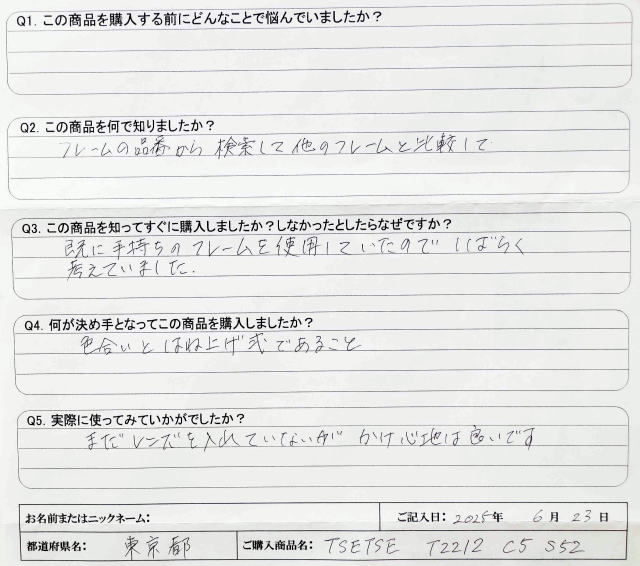 Q1. この商品を購入する前にどんなことで悩んでいましたか？
Q2. この商品を何で知りましたか？
フレームの品番から検索して他のフレームと比較して
Q3. この商品を知ってすぐに購入しましたか？しなかったとしたらなぜですか？
既に手持ちのフレームを使用していたのでしばらく
考えていました.
Q4. 何が決め手となってこの商品を購入しましたか？
色合いとはね上げ式であること
Q5. 実際に使ってみていかがでしたか？
まだレンズを入れていないが かけ心地は良いです
お名前またはニックネーム： ご記入日： 2025年 6月 23日
都道府県名： 東京都 ご購入商品名： TSETSE T2212 C5 S52